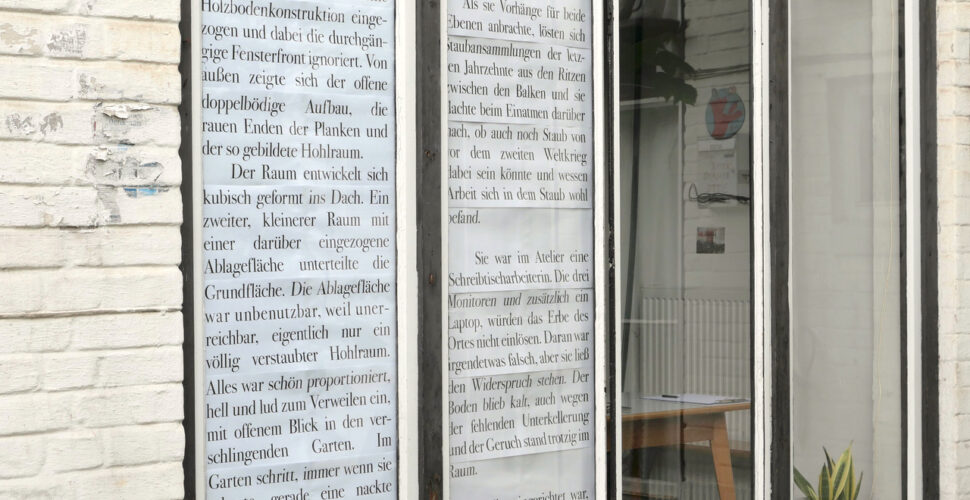 Holzbodenkonstruktion einge-
zogen und dabei die durchgän-
gige Fensterfront ignoriert. Von
außen zeigte sich der offene
doppelbödige Aufbau, die
rauen Enden der Planken und
der so gebildete Hohlraum.
Der Raum entwickelt sich
kubisch geformt ins Dach. Ein
zweiter, kleinerer Raum mit
einer darüber eingezogene
Ablagefläche unterteilte die
Grundfläche. Die Ablagefläche
war unbenutzbar, weil uner-
reichbar, eigentlich nur ein
völlig verstaubter Hohlraum.
Alles war schön proportioniert,
hell und lud zum Verweilen ein,
mit offenem Blick in den ver-
schlingenden Garten. Im
Garten schritt, immer wenn sie
gerade eine nackte
Als sie Vorhänge für beide
Ebenen anbrachte, lösten sich
Staubansammlungen der letz-
en Jahrzehnte aus den Ritzen
zwischen den Balken und sie
dachte beim Einatmen darüber
nach, ob auch noch Staub von
vor dem zweiten Weltkrieg
dabei sein könnte und wessen
Arbeit sich in dem Staub wohl
befand.
Sie war im Atelier eine
Schreibtischarbeiterin. Die drei
Monitoren und zusätzlich ein
Laptop, würden das Erbe des
Ortes nicht einlösen. Daran war
irgendetwas falsch, aber sie ließ
den Widerspruch stehen. Der
Boden blieb kalt, auch wegen
der fehlenden Unterkellerung
und der Geruch stand trotzig im
Raum.